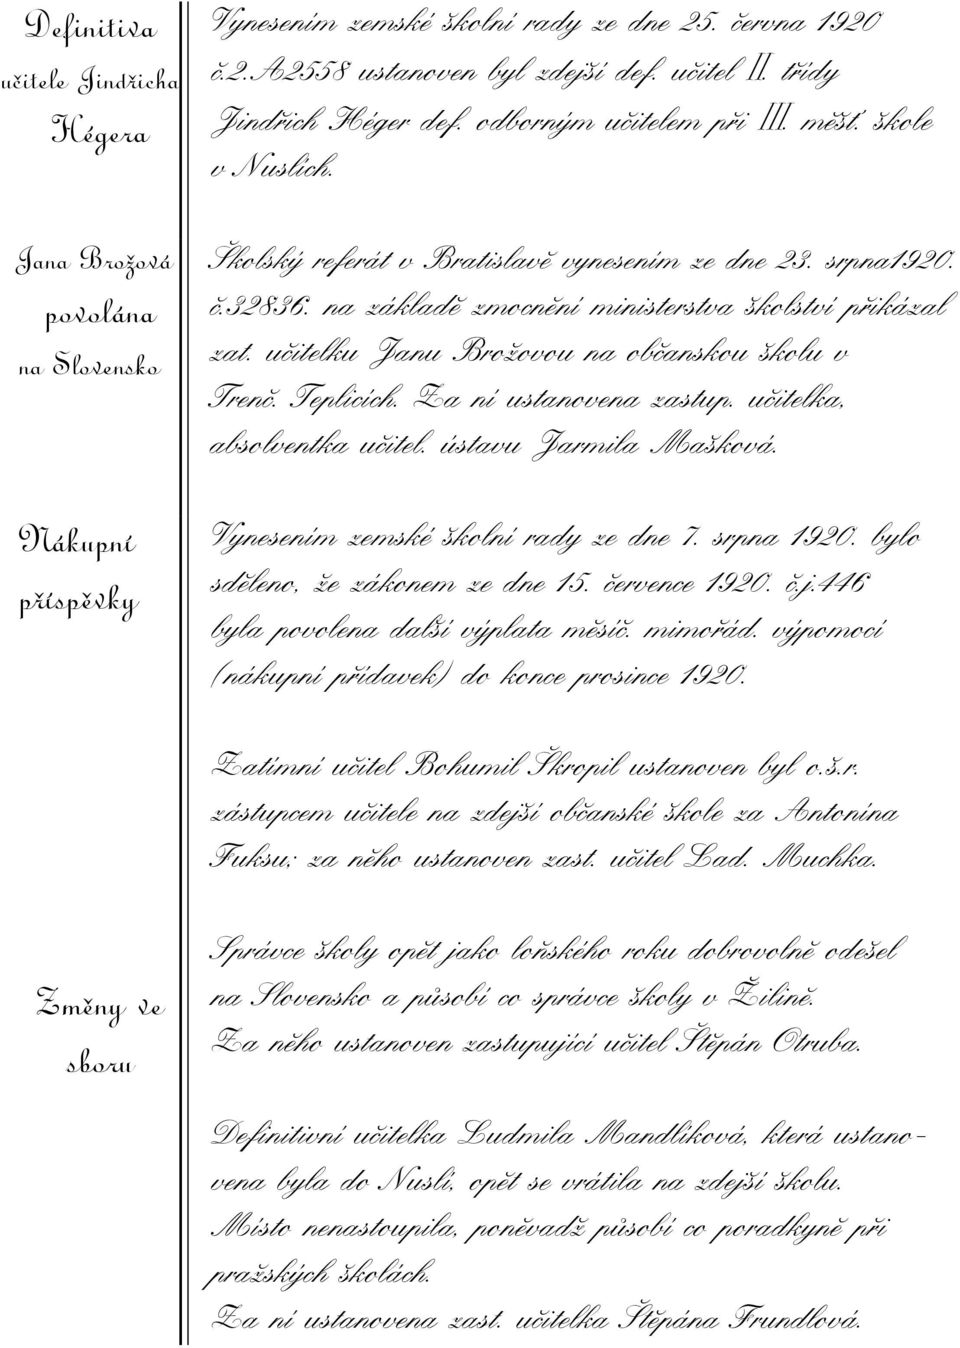 Definitiva
učitele Jindřicha
Hégera
Vynesením zemské školní rady ze dne 25. června 1920
č.2.A2558 ustanoven byl zdejší def. učitel II. třídy
Jindřich Héger def. odborným učitelem při III. měšť. škole
v Nuslích.
Jana Brožová
povolána
na Slovensko
Školský referát v Bratislavě vynesením ze dne 23. srpna1920.
č.32836. na základě zmocnění ministerstva školství přikázal
zat. učitelku Janu Brožovou na občanskou školu v
Trenč. Teplicích. Za ní ustanovena zastup. učitelka,
absolventka učitel. ústavu Jarmila Mašková.
Nákupní
příspěvky
Vynesením zemské školní rady ze dne 7. srpna 1920. bylo
sděleno, že zákonem ze dne 15. července 1920. č.j.446
byla povolena další výplata měsíč. mimořád. výpomocí
(nákupní přídavek) do konce prosince 1920.
Zatímní učitel Bohumil Škropil ustanoven byl o.š.r.
zástupcem učitele na zdejší občanské škole za Antonína
Fuksu; za něho ustanoven zast. učitel Lad. Muchka.
Změny ve
sboru
Správce školy opět jako loňského roku dobrovolně odešel
na Slovensko a působí co správce školy v Žilině.
Za něho ustanoven zastupující učitel Štěpán Otruba.
Definitivní učitelka Ludmila Mandlíková, která ustano-
vena byla do Nuslí, opět se vrátila na zdejší školu.
Místo nenastoupila, poněvadž působí co poradkyně při
pražských školách.
Za ní ustanovena zast. učitelka Štěpána Frundlová.